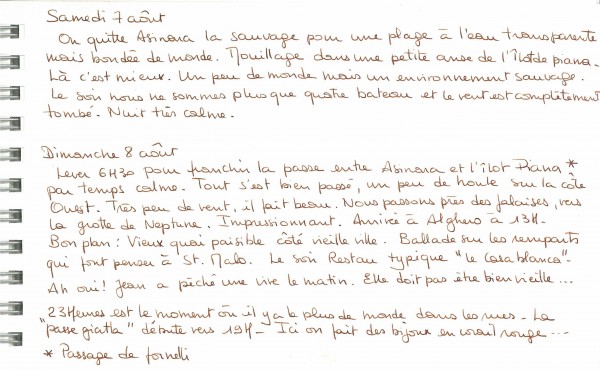 Samedi 7 août
On quitte Asinara la sauvage pour une plage à l'eau transparente
mais bondée de monde. Mouillage dans une petite anse de l'îlot de piana.
Là c'est mieux. Un peu de monde mais un environnement sauvage.
Le soir nous ne sommes plus que quatre bateau et le vent est complètement
tombé. Nuit très calme.
Dimanche 8 août
Lever 6H30 pour franchir la passe entre Asinara et l'îlot Piana *
par temps calme. Tout s'est bien passé, un peu de houle sur la côte
Ouest. Très peu de vent, il fait beau. Nous passons près des falaises, vers
la grotte de Neptune. Impressionnant. Arrivée à Alghero à 13H.
Bon plan : Vieux quai paisible côté vieille ville. Ballade sur les remparts
qui font penser à St. Malo. Le soir Restau typique "le casablanca".
Ah oui! Jean a pêché une vive le matin. Elle doit pas être bien vieille...
"23Heures est le moment où il y a le plus de monde dans les rues - La
"passe giatta" débute vers 19H - Ici on fait des bijoux en corail rouge ...
* Passage de fornelli